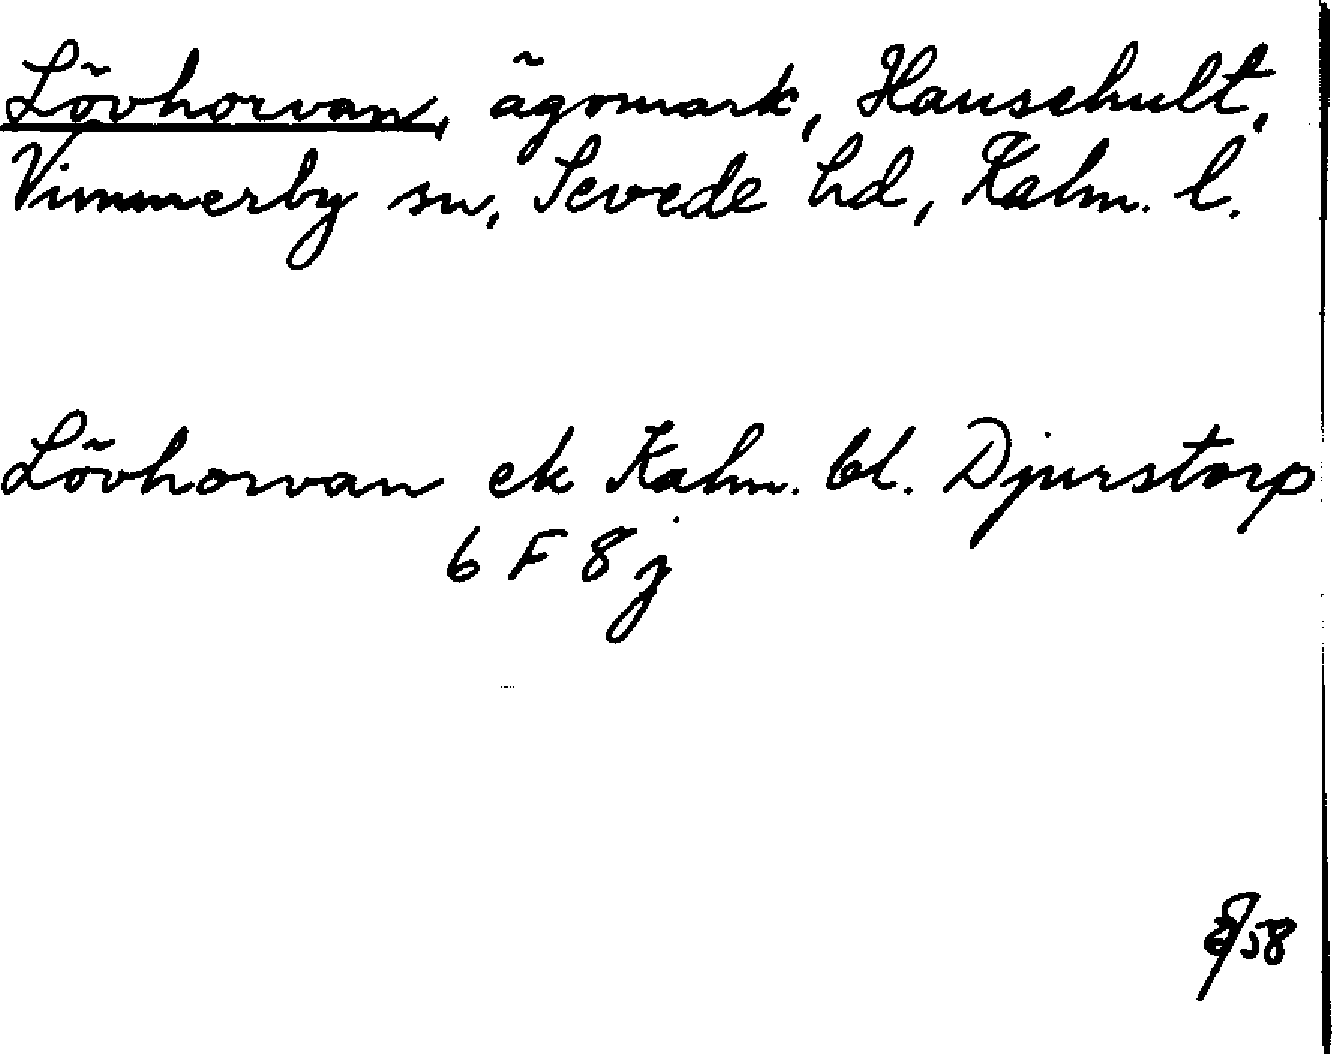 Lövhorvan, ägomark, Hauschult,
Vimmerby sn, Sevede hd, Kalm. l.
Lövhorvan ek Kalm. bl. Djurstorp
6 F 8 j
58